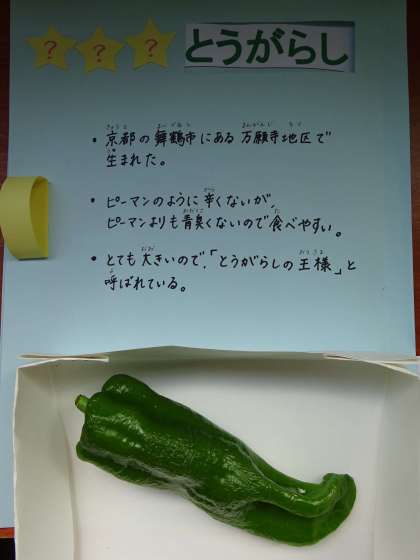 ? ? ? とうがらし
• 京都の舞鶴市にある万願寺地区で
生まれた。
• ピーマンのように辛くないが、
ピーマンよりも青臭くないので食べやすい。
• とても大きいので、「とうがらしの王様」と
呼ばれている。